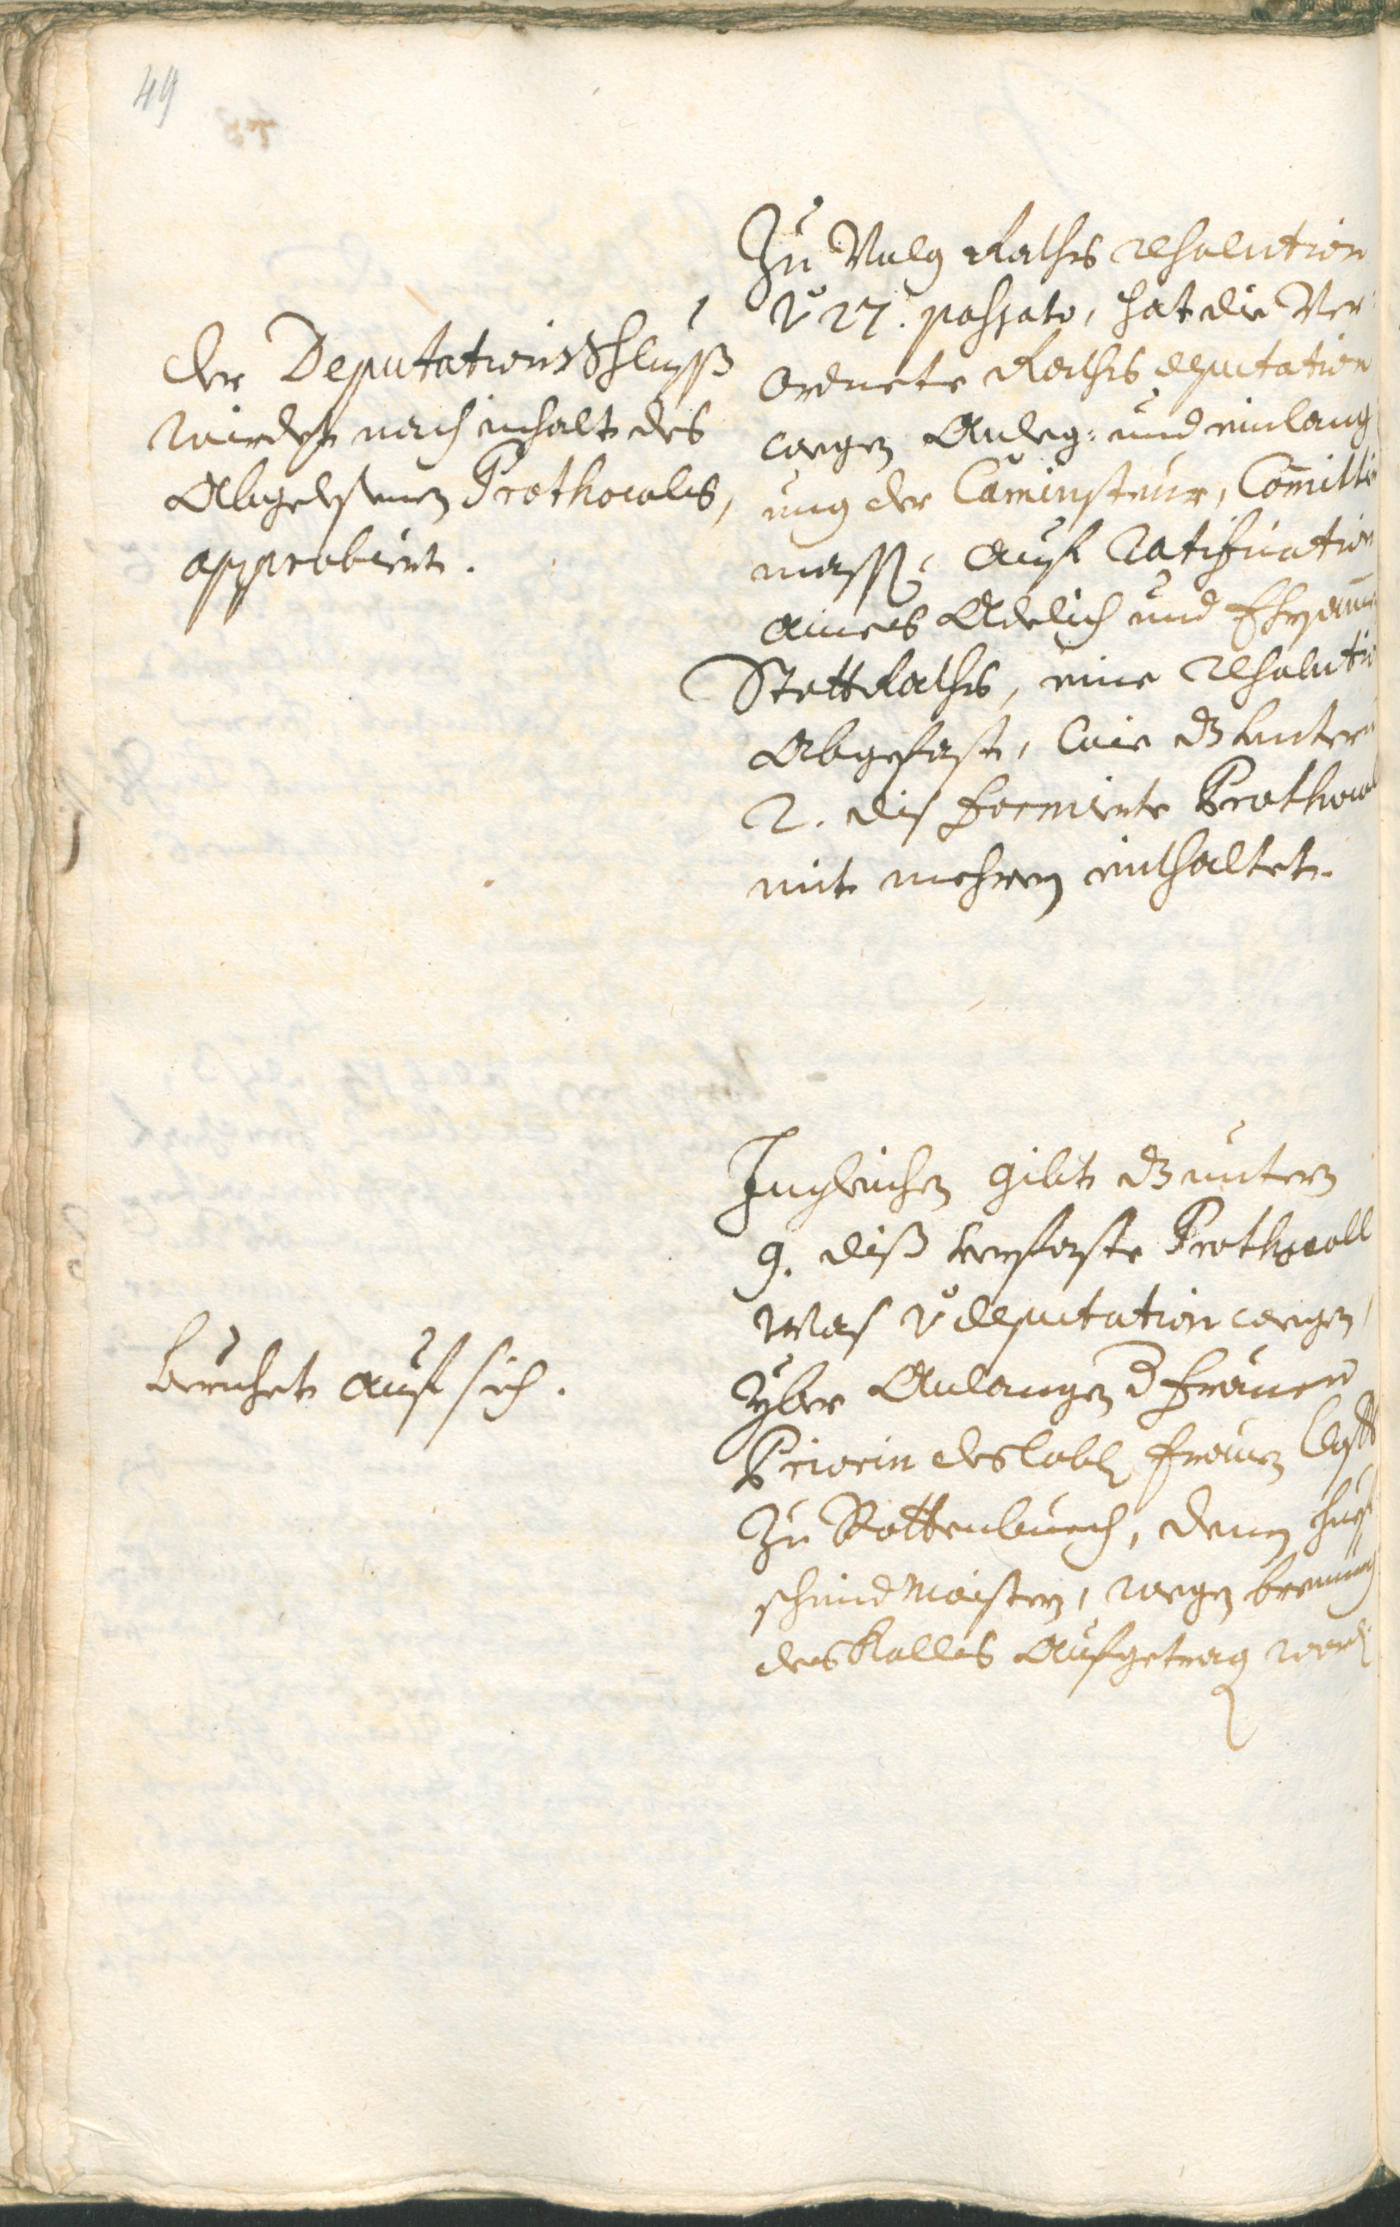 49
Der Deputations Schluss
wirdet nach inhalt des
Abgelesenen Prothocols,
approbiert.
Zu Volg Raths resolution
v 27. passato, hat die Ver-
ordnete Raths deputation
wegen Anleg: und einlang
ung der Caminsteur, Comissi
mess: auf Ratification
aines Adelich und Ehrsamen
Statt Raths, eine resolutio
Abgefast, wie dz unterm
2. dis formierte Prothocol
mit mehrern enthaltet.
Beruhet auf sich.
Ingleichen gibt dz unterm
9. diß verfaste Prothocoll
was v deputation wegen,
yber Anlangen d frauen
Priorin des Lobl frauen Closters
zu Rottenbuech, denen
schmid maistern, wegen brennung
des Kalks Aufgetrag word